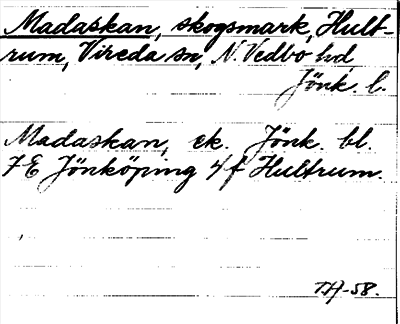 Madaskan, skogsmark, Hult-
rum, Vireda sn, N. Vedbo hd,
Jönk. l.
Madaskan, ek. Jönk. bl.
7 E Jönköping 4 f Hultrum.
TH-58.